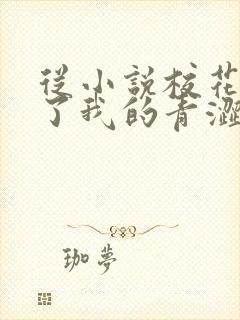 從小說校花
了我的青澀
珈夢